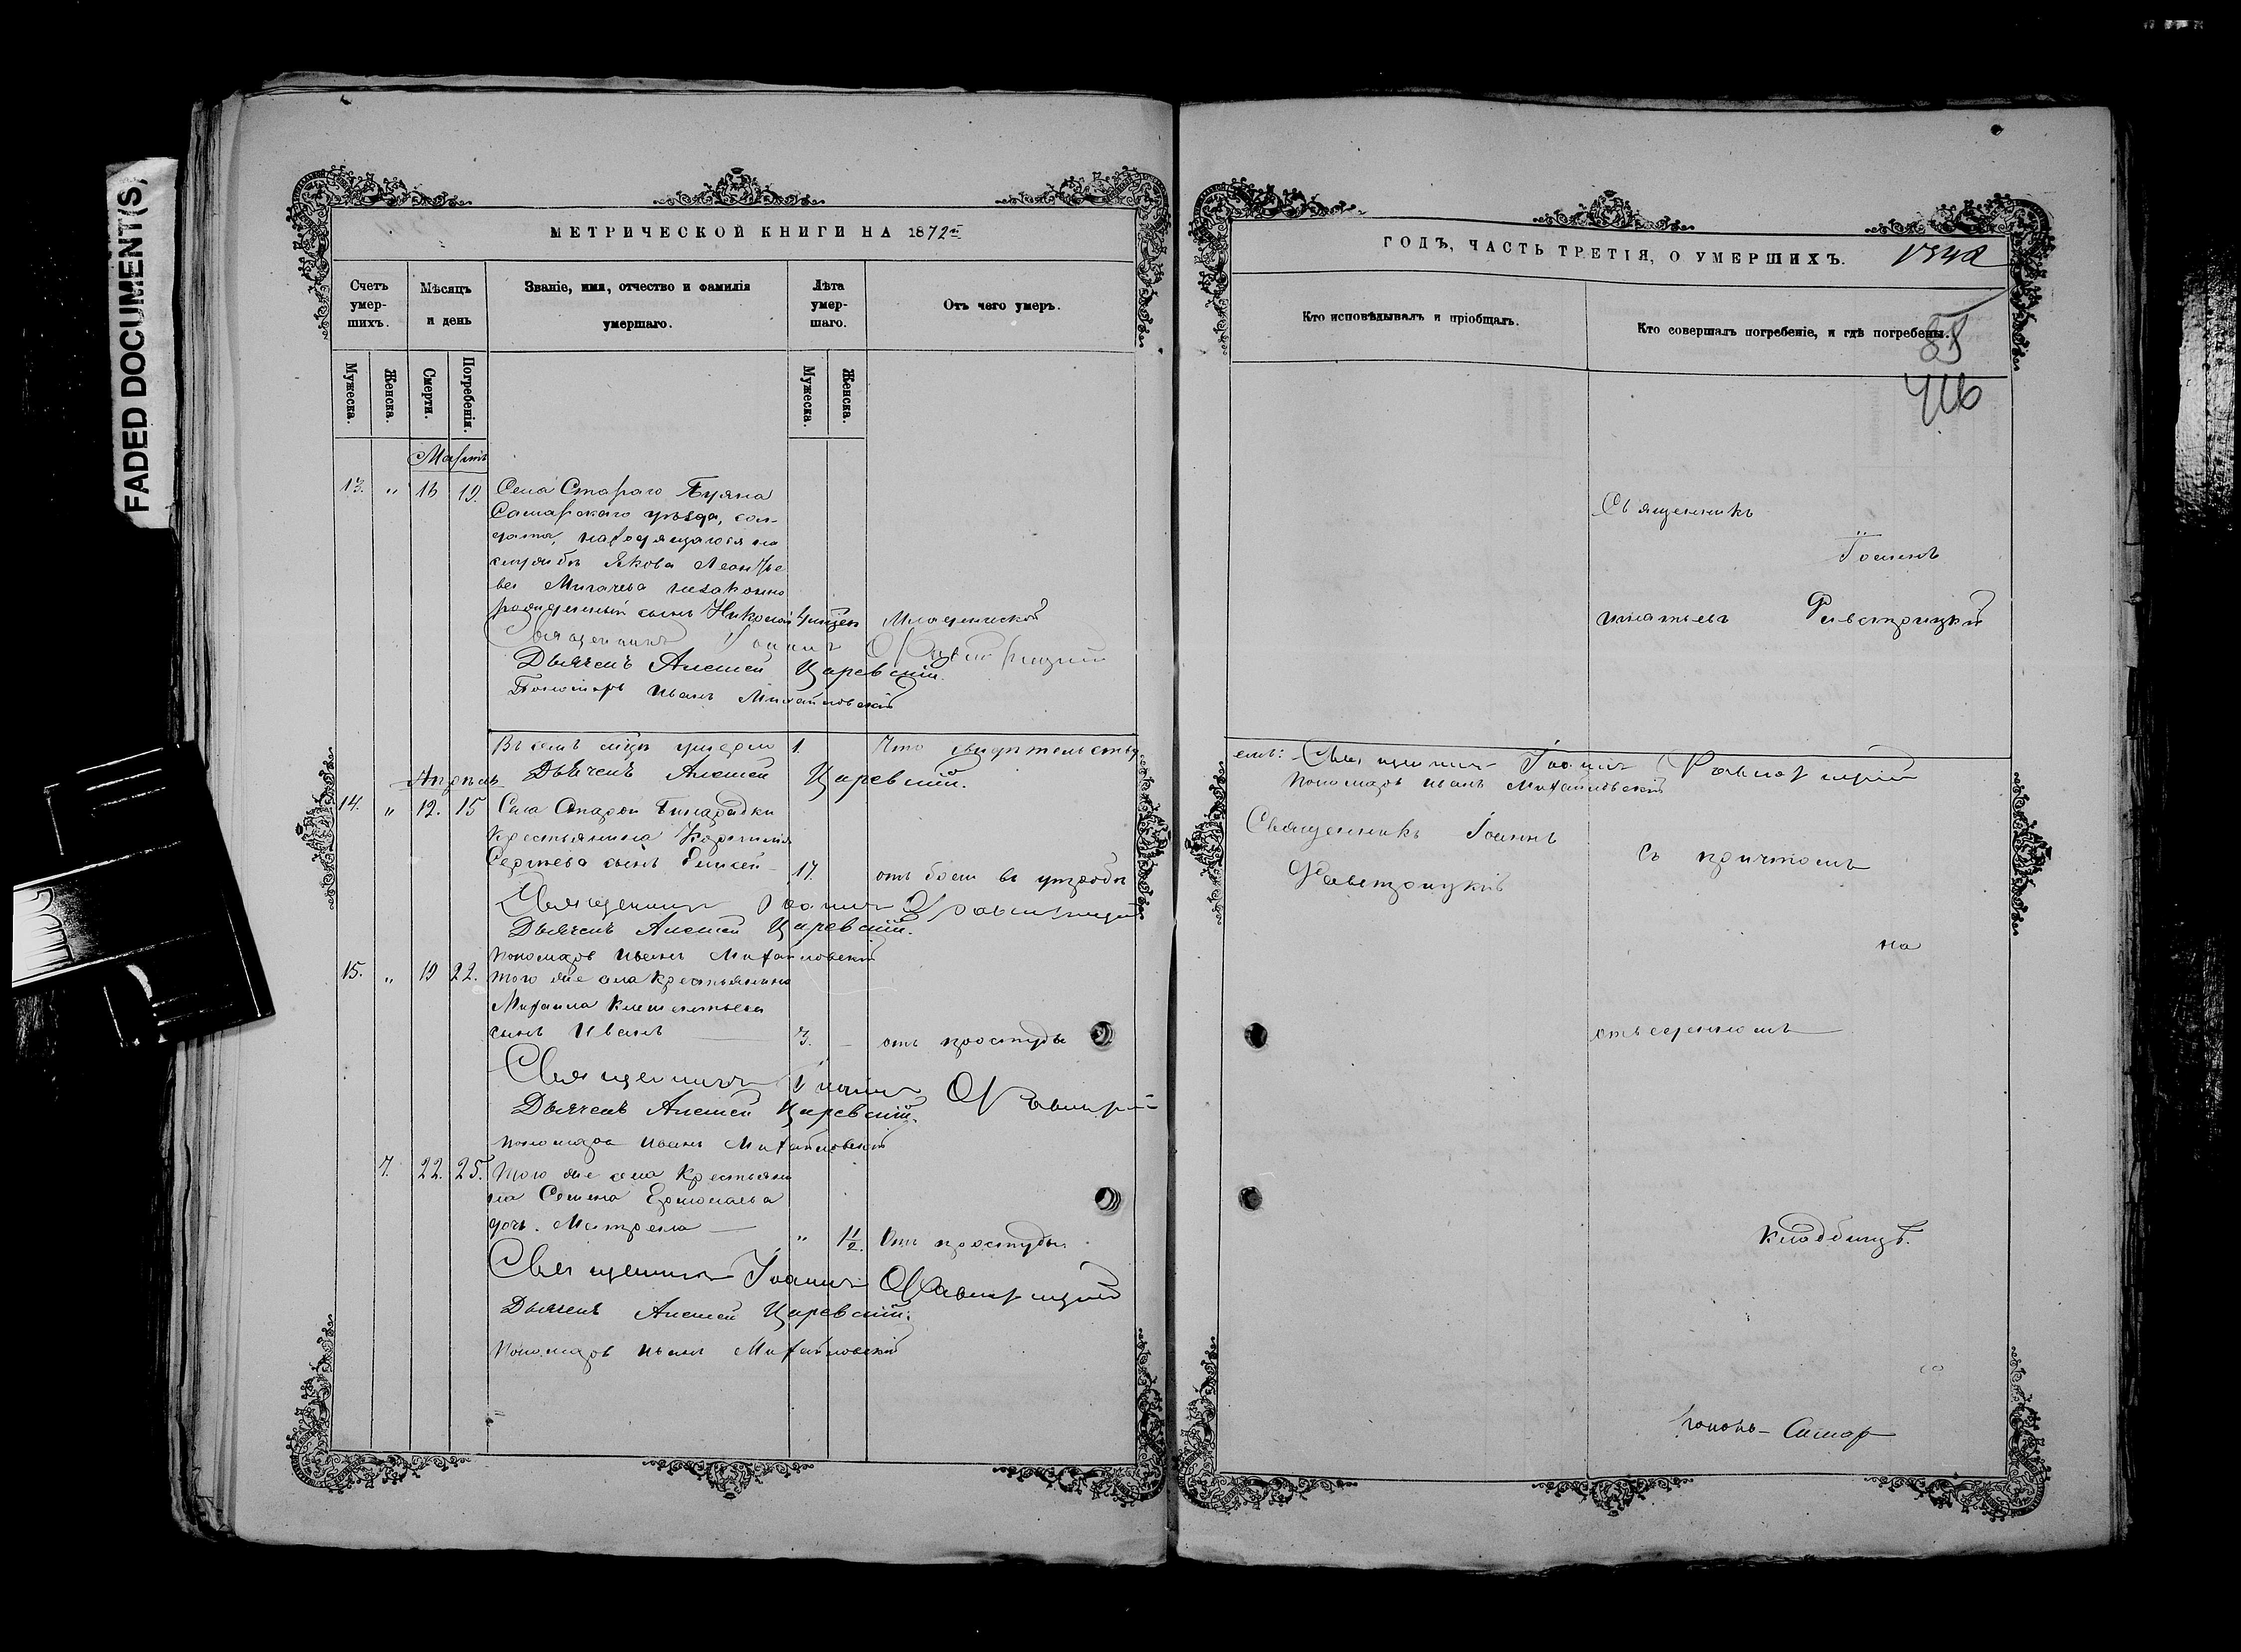 FADED DOCUMENT(S)
МЕТРИЧЕСКОЙ КНИГИ НА 1872й
Счетъ умер-шихъ.
Мѣсяцъ и день
Званіе, имя, отчество и фамилія умершаго.
Лѣта умер-шаго.
Отъ чего умеръ.
Мужеска.
Женска.
Смерти.
Погребенія.
Мужеска.
Женска.
Мартъ
13. " 16 19. Села Стараго Буяна
Самарскаго уѣзда, сол-
дата, находящагося на
службѣ Якова Леонтье
ва Мигачева незаконно
рожденный сынъ Николай 4 Младенческой
Священникъ Іоаннъ
Дьячекъ Алексей Царевскій.
Пономарь Иванъ Михайловскій
Въ семъ мцѣ умерло 1. Что свидѣтельству
Апрѣль Дьячекъ Алексей Царевскій.
14. " 12. 15 Села Старой Бинарадки
Крестьянина
Сергѣева сынъ Елисей 17. отъ боли въ утробѣ
Священникъ Іоаннъ
Дьячекъ Алексей Царевскій.
Пономарь Иванъ Михайловскій
15. " 19 22. Того же села крестьянина
Михаила Климентьева
сынъ Иванъ 3. – отъ простуды
Священникъ Іоаннъ
Дьячекъ Алексей Царевскій.
Пономарь Иванъ Михайловскій
7. 22. 25. Того же села Крестьяни
на Семена Ермолаева
дочь Матрена " 1 1/2. Отъ простуды
Священникъ Іоаннъ
Дьячекъ Алексей Царевскій.
Пономарь Иванъ Михайловскій
ГОДЪ, ЧАСТЬ ТРЕТІЯ, О УМЕРШИХЪ.
Кто исповѣдывалъ и пріобщалъ.
Кто совершалъ погребеніе, и гдѣ погребены.
85
416
Священникъ
Іоаннъ
Игнатьевъ
емъ: Священникъ Іоаннъ
Пономарь Иванъ Михайловскій
Священникъ Іоаннъ
съ причтомъ
на
отведенномъ
кладбищѣ.